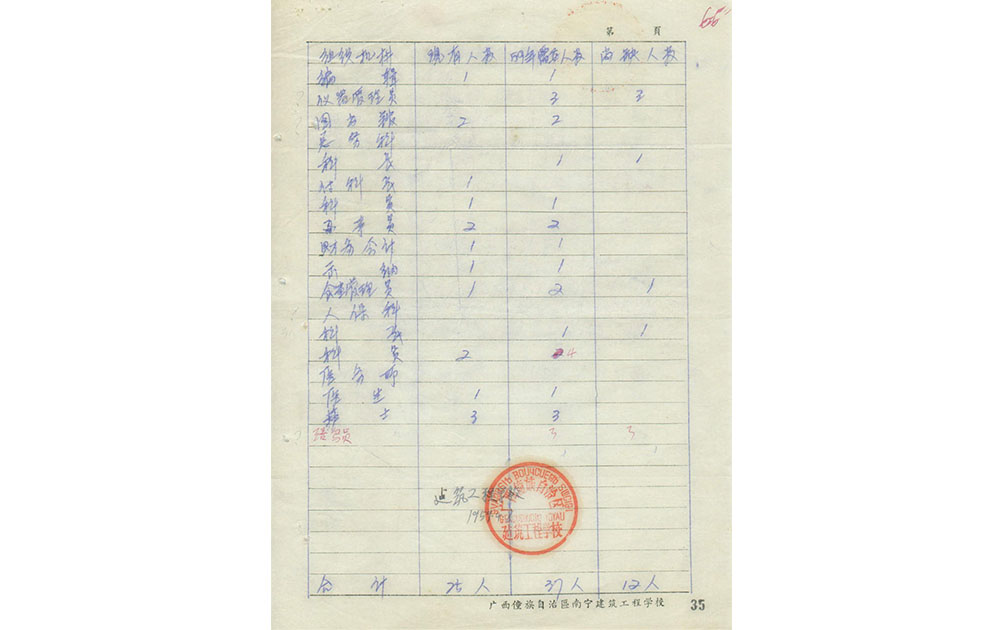 66
第 頁
组织机构 现有人数 59年需要人数 尚缺人数
编辑 1 1
仪器管理员 3 3
图书館 2 2
总务科
科长 1 1
付科长 1
科员 1 1
办事员 2 2
财务会计 1 1
出纳 1 1
伙食管理员 1 2 1
人保科
科长 1 1
科员 2 4
医务所
医生 1 1
护士 3 3
3 3
建筑工程学校
建筑工程学校
合计 25人 37人 12人
广西僮族自治區南宁建筑工程学校 35